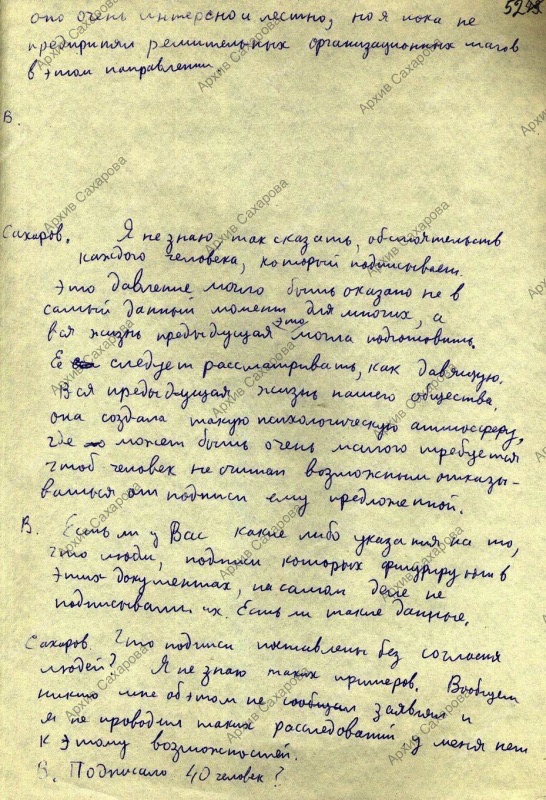 529
оно очень интересно и лестно, но я пока не
предпринял решительных организационных шагов
в этом направлении
В.
Сахаров. Я не знаю, так сказать, обстоятельств
каждого человека, который подписывает.
Это давление могло быть оказано не в
самый данный момент для многих, а
вся жизнь предыдущая это могла подготовить.
Её следует рассматривать, как давящую.
Вся предыдущая жизнь нашего общества,
она создала такую психологическую атмосферу,
где может быть очень малого требуется
чтоб человек не считал возможным отказы-
ваться от подписи ему предложенной.
В. Есть ли у Вас какие либо указания на то,
что люди, подписи которых фигурируют в
этих документах, на самом деле не
подписывали их. Есть ли такие данные.
Сахаров. Что подписи поставлены без согласия
людей? Я не знаю таких примеров. Вообщем
никто мне об этом не сообщал заявлял и
я не проводил таких расследований у меня нет
к этому возможностей.
В. Подписало 40 человек?
Архив Сахарова